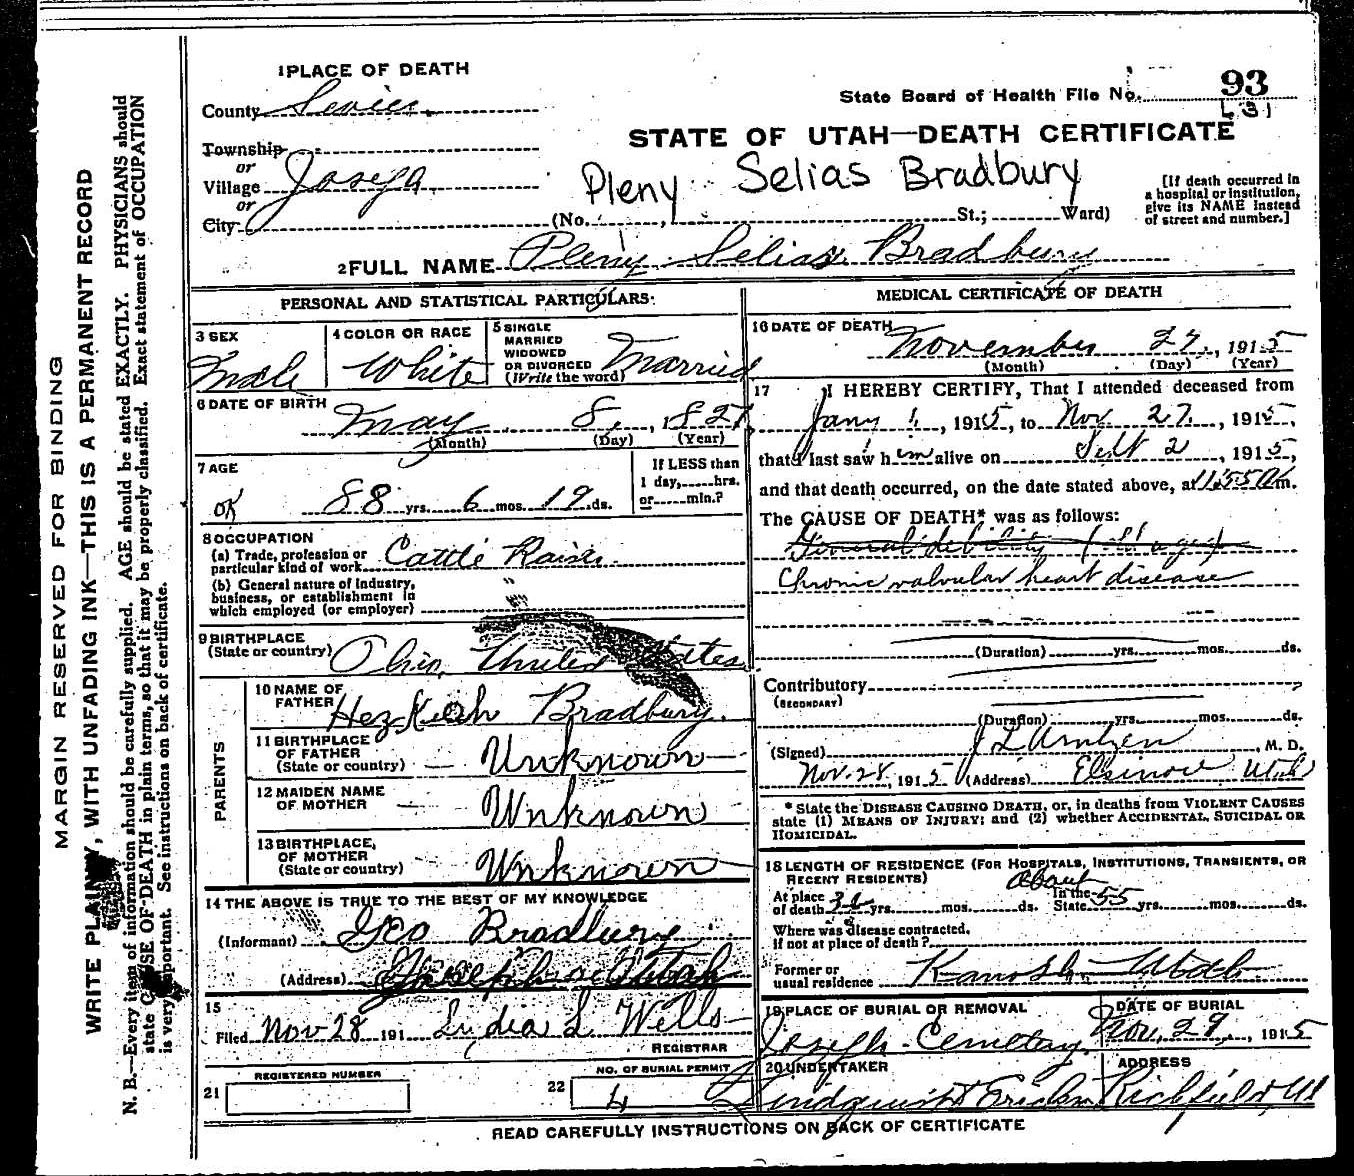 1 PLACE OF DEATH
County Sevier
State Board of Health File No. 93
STATE OF UTAH—DEATH CERTIFICATE
Township
or
Village Joseph
or
City
Pleny Selias Bradbury
(No. , St.; Ward)
[If death occurred in
a hospital or institution,
give its NAME instead
of street and number.]
2 FULL NAME Pleny Selias Bradbury
PERSONAL AND STATISTICAL PARTICULARS.
3 SEX
Male
4 COLOR OR RACE
White
5 SINGLE
MARRIED
WIDOWED
OR DIVORCED
(Write the word)
Married
6 DATE OF BIRTH
May 8, 1827
(Month) (Day) (Year)
7 AGE
OK 88 yrs. 6 mos. 19 ds.
If LESS than
1 day, hrs.
or min.?
8 OCCUPATION
(a) Trade, profession or
particular kind of work Cattle Raiser
(b) General nature of industry,
business, or establishment in
which employed (or employer)
9 BIRTHPLACE
(State or country) Ohio, United States
PARENTS
10 NAME OF
FATHER Hezkieah Bradbury.
11 BIRTHPLACE
OF FATHER
(State or country) — Unknown—
12 MAIDEN NAME
OF MOTHER — Unknown
13 BIRTHPLACE,
OF MOTHER
(State or country) — Unknown—
14 THE ABOVE IS TRUE TO THE BEST OF MY KNOWLEDGE
(Informant) Geo Bradbury
(Address) Joseph Utah
15
Filed Nov 28 191 Lydia L Wells—
REGISTRAR
21 REGISTERED NUMBER
22 NO. OF BURIAL PERMIT
4
MEDICAL CERTIFICATE OF DEATH
16 DATE OF DEATH
November 27, 1915
(Month) (Day) (Year)
17 I HEREBY CERTIFY, That I attended deceased from
Jany 1, 1915, to Nov. 27, 1915,
that I last saw him alive on Sept 2, 1915,
and that death occurred, on the date stated above, at 11:55 m.
The CAUSE OF DEATH* was as follows:
General debility (old age)
Chronic valvular heart disease
(Duration) yrs. mos. ds.
Contributory
(SECONDARY)
(Duration) yrs. mos. ds.
(Signed) , M. D.
Nov. 28, 1915 (Address) Elsinore Utah
* State the DISEASE CAUSING DEATH, or, in deaths from VIOLENT CAUSES
state (1) MEANS OF INJURY; and (2) whether ACCIDENTAL, SUICIDAL OR
HOMICIDAL.
18 LENGTH OF RESIDENCE (FOR HOSPITALS, INSTITUTIONS, TRANSIENTS, OR
RECENT RESIDENTS) about
At place of death yrs. mos. ds. In the State 55 yrs. mos. ds.
Where was disease contracted,
If not at place of death?
Former or
usual residence Kanosh—Utah
19 PLACE OF BURIAL OR REMOVAL
Joseph Cemetary.
DATE OF BURIAL
Nov, 29, 1915
20 UNDERTAKER
Lindquist &
ADDRESS
Richfield, Ut
READ CAREFULLY INSTRUCTIONS ON BACK OF CERTIFICATE
MARGIN RESERVED FOR BINDING
WRITE PLAINLY, WITH UNFADING INK—THIS IS A PERMANENT RECORD
N. B.—Every item of information should be carefully supplied. AGE should be stated EXACTLY. PHYSICIANS should
state CAUSE OF DEATH in plain terms, so that it may be properly classified. Exact statement of OCCUPATION
is very important. See instructions on back of certificate.